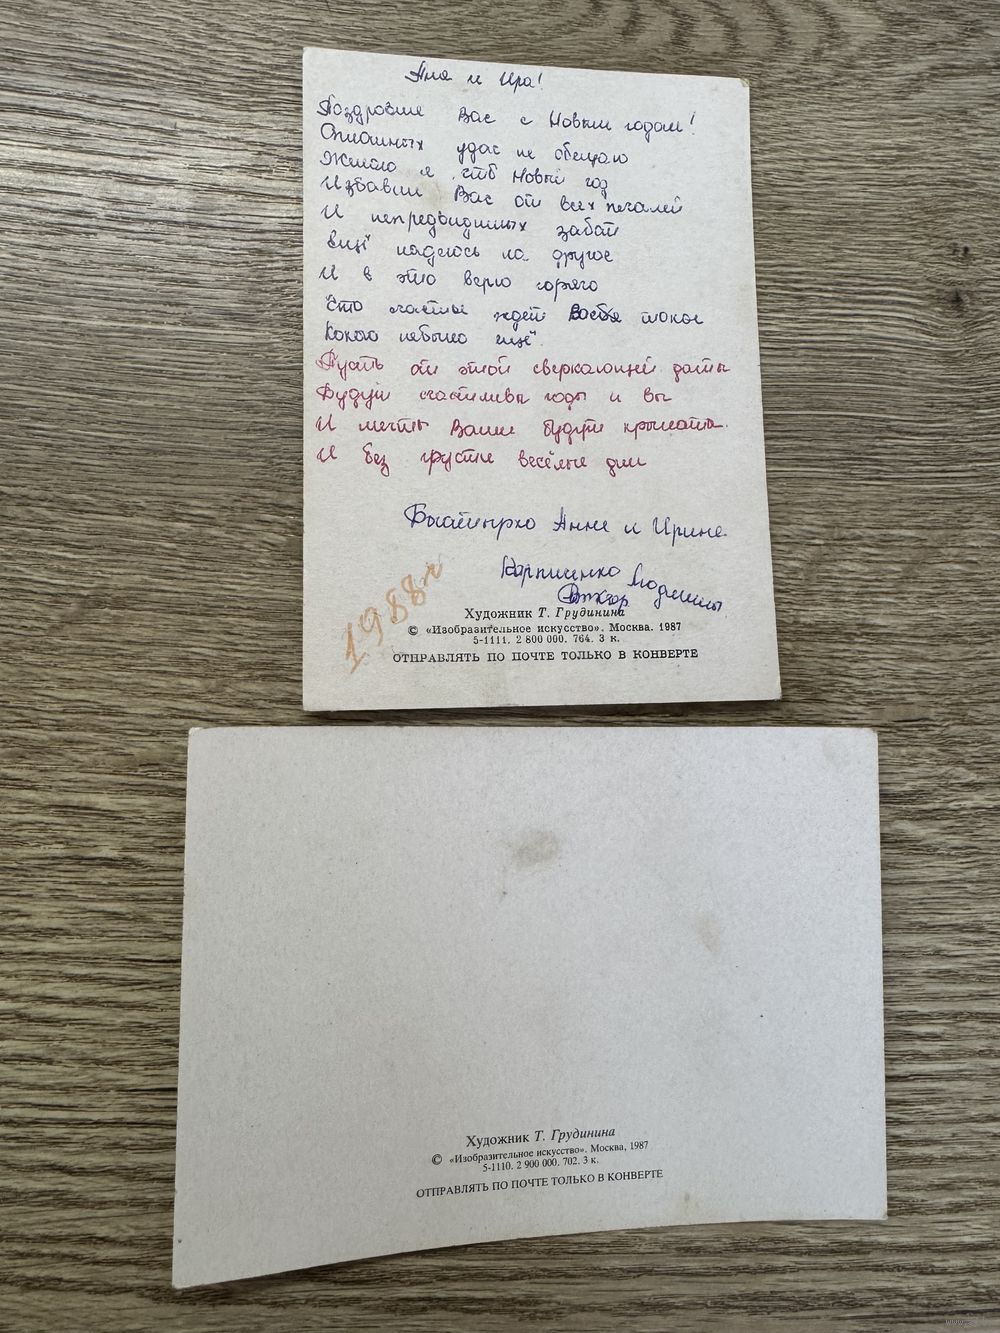 Аня и Ира!
Поздравляю Вас с Новым годом!
Сплошных удач не обещаю
Желаю я чтоб Новый год
Избавил Вас от всех печалей
И непредвиденных забот
Ещё надеюсь на другое
И в это верю горячо
Что счастье ждёт Вас такое
Какого небыло ещё.
Пусть от этой сверкающей даты
Будут счастливы годы и вы
И мечты Ваши будут крылаты.
И без грусти весёлые дни
Анне и Ирине
Людмилы
Виктор
1988г
Художник Т. Грудинина
© «Изобразительное искусство». Москва. 1987
5-1111. 2 800 000. 764. 3 к.
ОТПРАВЛЯТЬ ПО ПОЧТЕ ТОЛЬКО В КОНВЕРТЕ
Художник Т. Грудинина
© «Изобразительное искусство». Москва, 1987
5-1110. 2 900 000. 702. 3 к.
ОТПРАВЛЯТЬ ПО ПОЧТЕ ТОЛЬКО В КОНВЕРТЕ